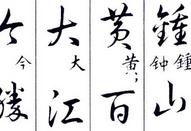 鍾 钟鍾 山
黄 黄; 百
大 大 江
今 今 勝